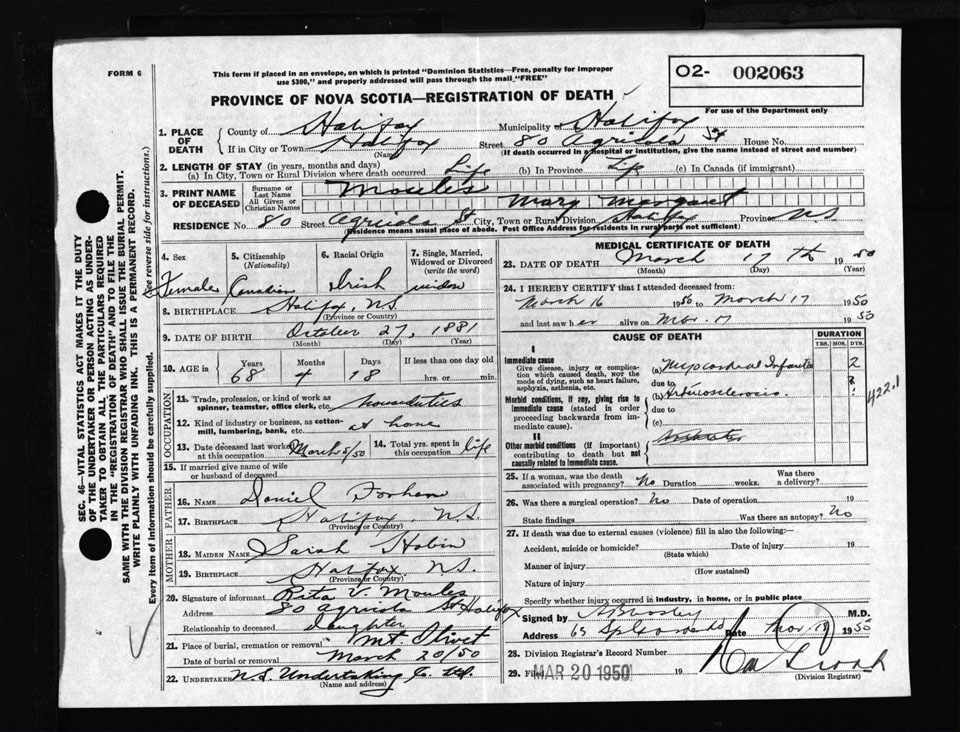 FORM 6
This form if placed in an envelope, on which is printed "Dominion Statistics—Free, penalty for improper
use $300," and properly addressed will pass through the mail "FREE"
O2- 002063
For use of the Department only
PROVINCE OF NOVA SCOTIA—REGISTRATION OF DEATH
1. PLACE OF DEATH
County of Halifax Municipality of Halifax
If in City or Town Halifax Street 80 Agricola St House No.
(Name) (If death occurred in a hospital or institution, give the name instead of street and number)
2. LENGTH OF STAY (in years, months and days)
(a) In City, Town or Rural Division where death occurred Life (b) In Province Life (c) In Canada (if immigrant)
3. PRINT NAME OF DECEASED
Surname or Last Name Moules
All Given or Christian Names Mary Margaret
RESIDENCE No. 80 Street Agricola St City, Town or Rural Division Halifax Province N.S
(Residence means usual place of abode. Post Office Address for residents in rural parts not sufficient)
4. Sex Female
5. Citizenship (Nationality) Canadian
6. Racial Origin Irish
7. Single, Married, Widowed or Divorced (write the word) widow
8. BIRTHPLACE Halifax, N.S.
(Province or Country)
9. DATE OF BIRTH October 27, 1881
(Month) (Day) (Year)
10. AGE in Years Months Days If less than one day old
68 4 18 hrs. or min.
OCCUPATION
11. Trade, profession, or kind of work as spinner, teamster, office clerk, etc. House duties
12. Kind of industry or business, as cotton-mill, lumbering, bank, etc. at home
13. Date deceased last worked at this occupation March 5/50
14. Total yrs. spent in this occupation life
15. If married give name of wife or husband of deceased
FATHER
16. NAME Daniel Forhan
17. BIRTHPLACE Halifax, N.S.
(Province or Country)
MOTHER
18. MAIDEN NAME Sarah Hobin
19. BIRTHPLACE Halifax N.S.
(Province or Country)
20. Signature of informant Rita V. Moules
Address 80 Agricola St Halifax
Relationship to deceased daughter
21. Place of burial, cremation or removal Mt Olivet
Date of burial or removal March 20/50
22. UNDERTAKER N.S. Undertaking Co. Ltd.
(Name and address)
MEDICAL CERTIFICATE OF DEATH
23. DATE OF DEATH March 17th 1950
(Month) (Day) (Year)
24. I HEREBY CERTIFY that I attended deceased from:
March 16 1950 to March 17 1950
and last saw her alive on Mar. 17 1950
CAUSE OF DEATH
DURATION
YRS. MOS. DYS.
I
Immediate cause
Give disease, injury or complication which caused death, NOT the mode of dying, such as heart failure, asphyxia, asthenia, etc.
(a) Myocardial Infarct 2
due to
Morbid conditions, if any, giving rise to immediate cause (stated in order proceeding backwards from immediate cause).
(b) Arteriosclerosis ?
due to
(c)
422.1
II
Other morbid conditions (if important) contributing to death but not causally related to immediate cause.
25. If a woman, was the death associated with pregnancy? No Duration weeks. Was there a delivery?
26. Was there a surgical operation? No Date of operation 19
State findings Was there an autopsy? No
27. If death was due to external causes (violence) fill in also the following:—
Accident, suicide or homicide? Date of injury 19
(State which)
Manner of injury
(How sustained)
Nature of injury
Specify whether injury occurred in industry, in home, or in public place
Signed by M.D.
Address 65 Date Mar. 18 1950
28. Division Registrar's Record Number
29. Filed MAR 20 1950 19
(Division Registrar)
SEC. 46—VITAL STATISTICS ACT MAKES IT THE DUTY
OF THE UNDERTAKER OR PERSON ACTING AS UNDER-
TAKER TO OBTAIN ALL THE PARTICULARS REQUIRED
IN THE "REGISTRATION OF DEATH" AND TO FILE THE
SAME WITH THE DIVISION REGISTRAR WHO SHALL ISSUE THE BURIAL PERMIT.
WRITE PLAINLY WITH UNFADING INK. THIS IS A PERMANENT RECORD.
Every item of information should be carefully supplied. (See reverse side for instructions.)